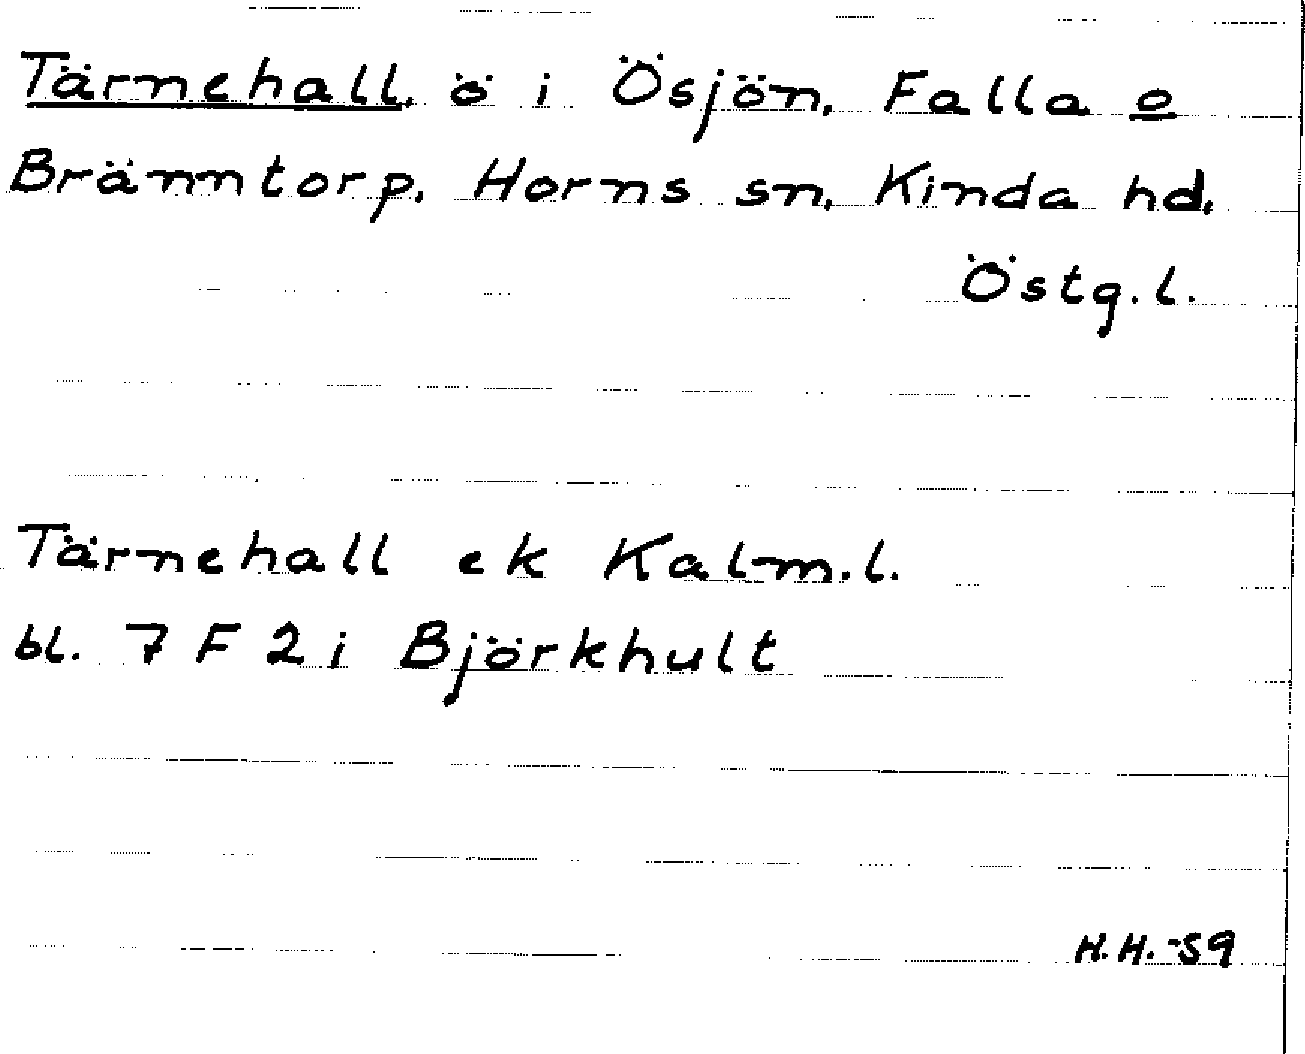 Tärnehall, ö i Ösjön, Falla o
Bränntorp, Horns sn, Kinda hd,
Östg.l.
Tärnehall ek Kalm.l.
bl. 7 F 2 i Björkhult
H.H.-59